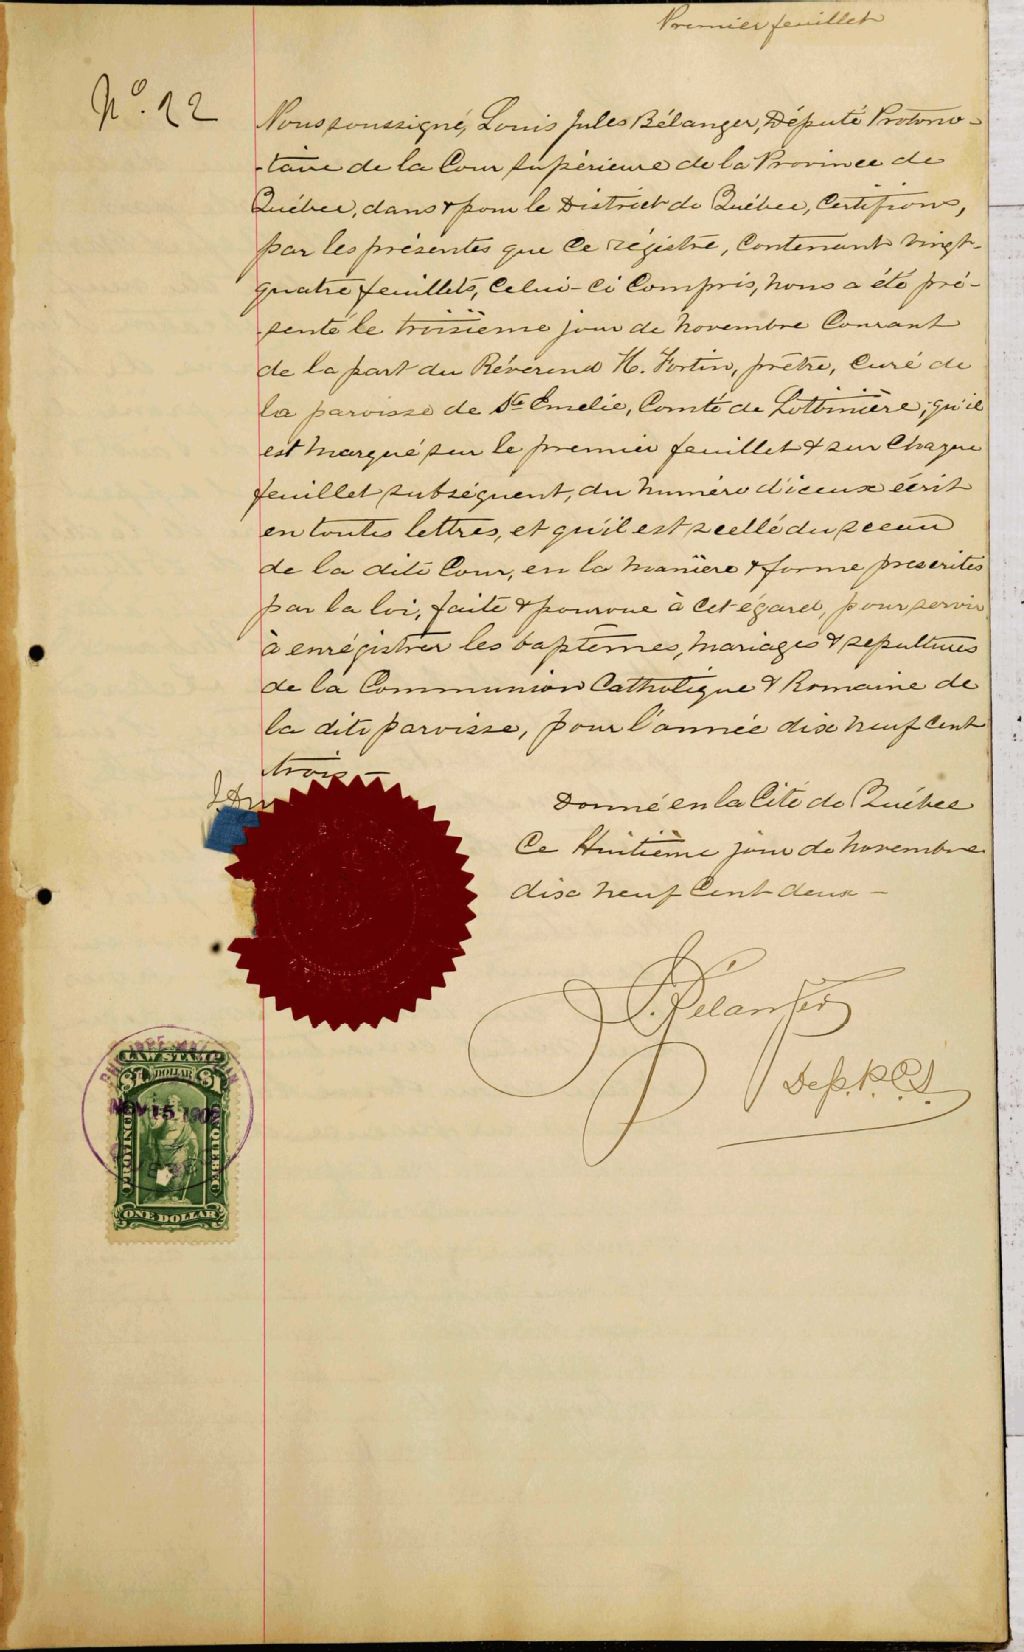 Premier feuillet
No. 22
Nous soussigné, Louis Jules Bélanger, Député Protono-
-taire de la Cour Supérieure de la Province de
Québec, dans & pour le District de Québec, Certifions,
par les présentes que ce régistre, contenant vingt-
quatre feuillets, celui-ci compris, nous a été pré-
-senté le troisième jour de novembre courant
de la part du Révérend H. Fortin, prêtre, curé de
la paroisse de Ste Emelie, Comté de Lotbinière; qu'il
est marqué sur le premier feuillet & sur chaque
feuillet subséquent, du numéro d'iceux écrit
en toutes lettres, et qu'il est scellé du sceau
de la dite Cour, en la manière & forme prescrites
par la loi, faite & pourvue à cet égard, pour servir
à enrégistrer les baptêmes, mariages & sepultures
de la Communion Catholique & Romaine de
la dite paroisse, pour l'année dix neuf cent
trois —
Donné en la Cité de Québec
Ce Huitième jour de novembre
dix neuf cent deux —
J. Bélanger
Dep. P.C.S.
LAW STAMP
$1 DOLLAR $1
NOV 15 1902
PROVINCE QUEBEC
ONE DOLLAR